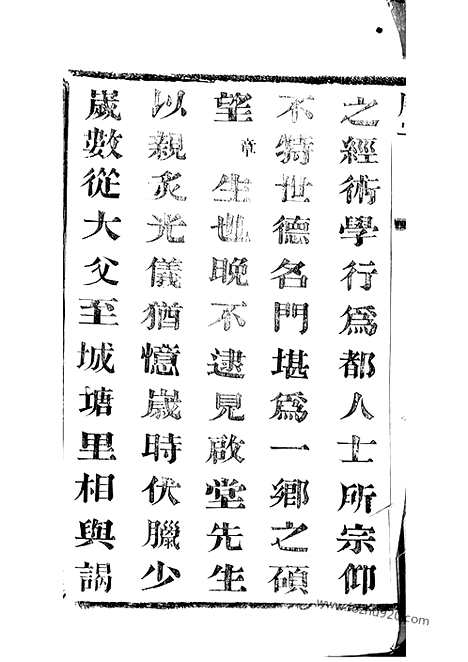 之經術學行爲都人士所宗仰
不特世德名門堪爲一鄉之碩
望章生也晚不逮見啟堂先生
以親炙光儀猶憶歲時伏臘少
歲數從大父至城塘里相與謁